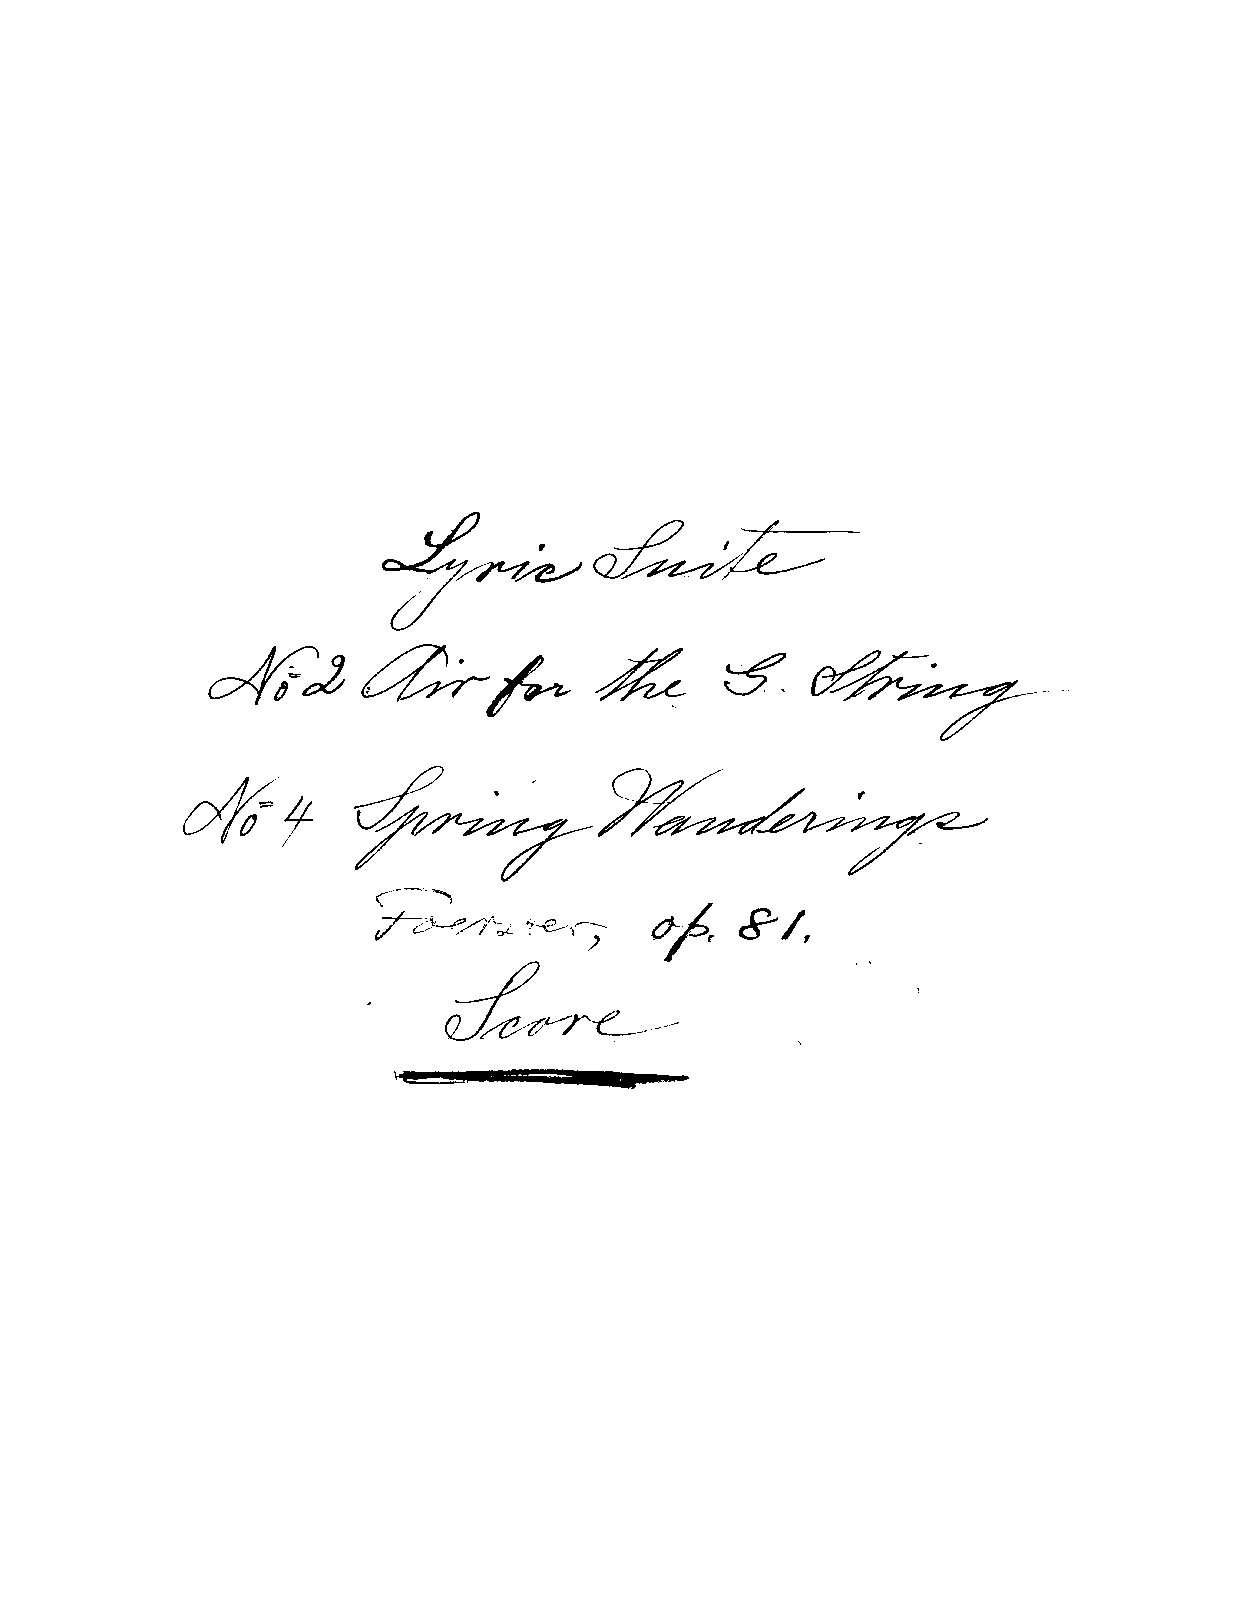 Lyric Suite
No 2 Air for the G. String
No 4 Spring Wanderings
Foerster, op. 81.
Score